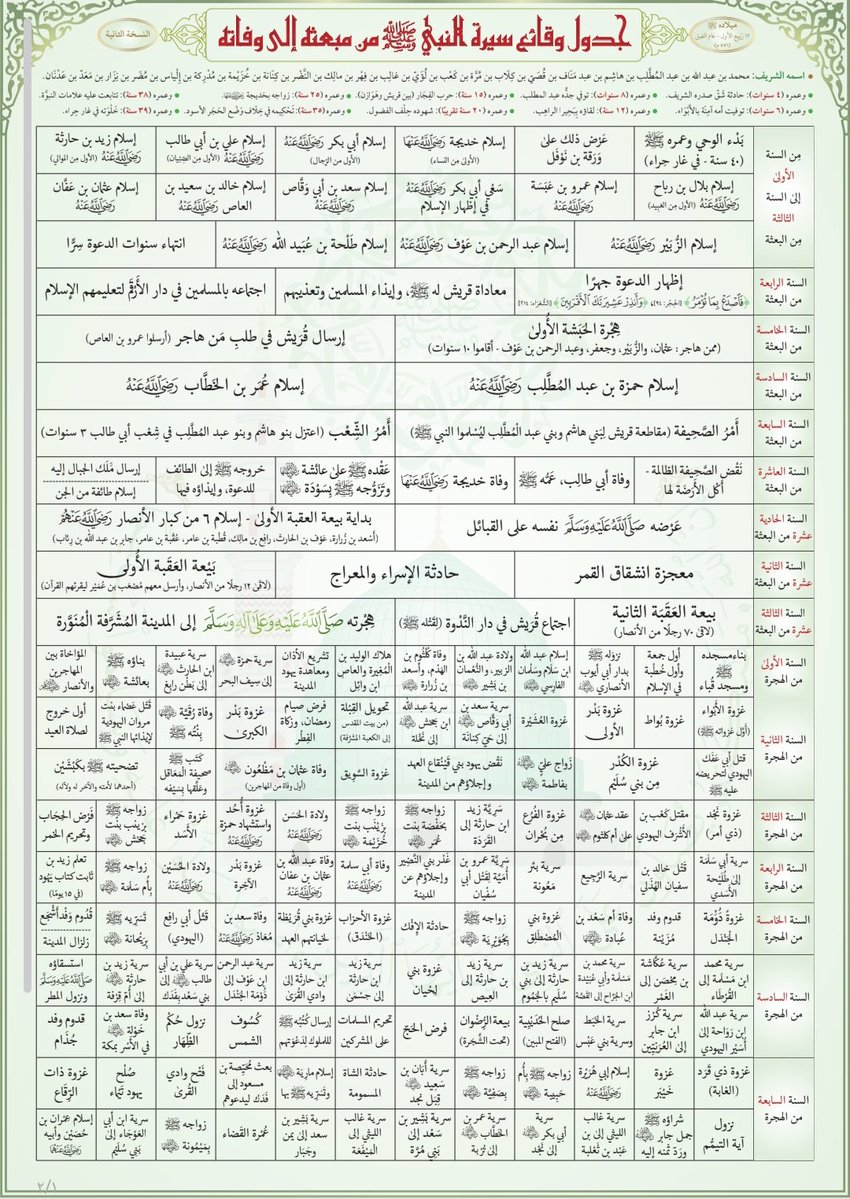 جدول وقائع سيرة النبي ﷺ من مبعثه إلى وفاته
ميلاده ﷺ
١٢ ربيع الأول - عام الفيل
(٥٧١ م)
النسخة الثانية
• اسمه الشريف: محمد بن عبد الله بن عبد المُطَّلِب بن هاشِم بن عبد مَناف بن قُصَيّ بن كِلاب بن مُرَّة بن كَعْب بن لُؤَيّ بن غالِب بن فِهْر بن مالِك بن النَّضْر بن كِنانة بن خُزَيْمة بن مُدْرِكة بن إلْياس بن مُضَر بن نِزار بن مَعَدّ بن عَدْنان.
• وعمره (٤ سنوات): حادثة شَقّ صدره الشريف. • وعمره (٨ سنوات): توفي جدُّه عبد المطلب. • وعمره (١٥ سنة): حرب الفِجَار (بين قريش وهَوَازن). • وعمره (٢٥ سنة): زواجه بخديجة. • وعمره (٣٨ سنة): تتابعت عليه علامات النبوَّة.
• وعمره (٦ سنوات): توفيت أمه آمِنَة بالأَبْوَاء. • وعمره (١٢ سنة): لقاؤه ببَحِيرا الراهِب. • وعمره (٢٠ سنة تقريبًا): شهوده حِلْف الفضول. • وعمره (٣٥ سنة): تَحْكيمه في خِلَاف وَضْع الحَجَر الأسود. • وعمره (٣٩ سنة): خَلْوَته في غار حِراء.
مِن السنة الأولى إلى السنة الثالثة مِن البعثة
بَدْء الوحي وعمره ﷺ (٤٠ سنة - في غار حراء)
عَرْض ذلك على وَرَقة بن نَوْفَل
إسلام خديجة رَضِيَ اللَّهُ عَنْهَا (الأولى مِن النساء)
إسلام أبي بكر رَضِيَ اللَّهُ عَنْهُ (الأول مِن الرِّجال)
إسلام علي بن أبي طالب رَضِيَ اللَّهُ عَنْهُ (الأول مِن الصِّبْيان)
إسلام زيد بن حارثة رَضِيَ اللَّهُ عَنْهُ (الأول مِن الموالي)
إسلام بلال بن رباح رَضِيَ اللَّهُ عَنْهُ (الأول مِن العَبِيد)
إسلام عمرو بن عَبَسَة رَضِيَ اللَّهُ عَنْهُ
سَعْي أبي بكر رَضِيَ اللَّهُ عَنْهُ في إظهار الإسلام
إسلام سعد بن أبي وَقَّاص رَضِيَ اللَّهُ عَنْهُ
إسلام خالد بن سعيد بن العاص رَضِيَ اللَّهُ عَنْهُ
إسلام عثمان بن عَفَّان رَضِيَ اللَّهُ عَنْهُ
إسلام الزُّبَيْر رَضِيَ اللَّهُ عَنْهُ
إسلام عبد الرحمن بن عَوْف رَضِيَ اللَّهُ عَنْهُ
إسلام طَلْحة بن عُبَيد الله رَضِيَ اللَّهُ عَنْهُ
انتهاء سنوات الدعوة سِرًّا
السنة الرابعة من البعثة
إظهار الدعوة جهرًا
﴿فَاصْدَعْ بِمَا تُؤْمَرُ﴾ [الحِجْر: ٩٤]، ﴿وَأَنْذِرْ عَشِيرَتَكَ الْأَقْرَبِينَ﴾ [الشُّعَرَاء: ٢١٤]
معاداة قريش له ﷺ، وإيذاء المسلمين وتعذيبهم
اجتماعه بالمسلمين في دار الأَرْقَم لتعليمهم الإسلام
السنة الخامسة من البعثة
هِجْرة الحَبَشة الأُولىٰ
(ممن هاجر: عثمان، والزُّبَيْر، وجعفر، وعبد الرحمن بن عَوْف - أقاموا ١٠ سنوات)
إرسال قُرَيْش في طلبِ مَن هاجر (أرسلوا عمرو بن العاص)
السنة السادسة من البعثة
إسلام حمزة بن عبد المُطَّلِب رَضِيَ اللَّهُ عَنْهُ
إسلام عُمَر بن الخَطَّاب رَضِيَ اللَّهُ عَنْهُ
السنة السابعة من البعثة
أَمْرُ الصَّحِيفة (مقاطعة قريش لِبَني هاشم وبني عبد الْمُطَّلِب ليُسْلموا النبي ﷺ)
أَمْرُ الشِّعْب (اعتزل بنو هاشم وبنو عبد المطَّلِب في شِعْب أبي طالب ٣ سنوات)
السنة العاشرة من البعثة
نَقْض الصحيفة الظالمة - أَكْل الأَرَضة لها
وفاة أبي طالِب، عَمِّه ﷺ
وفاة خديجة رَضِيَ اللَّهُ عَنْهَا
عَقْده ﷺ علىٰ عائشة وتَزَوُّجه ﷺ بسَوْدة
خروجه ﷺ إلى الطائف للدعوة، وإيذاؤه فيها
إرسال مَلَك الجبال إليه
إسلام طائفة من الجن
السنة الحادية عشرة من البعثة
عَرْضه صَلَّى اللَّهُ عَلَيْهِ وَسَلَّمَ نفسه على القبائل
بداية بيعة العقبة الأولى - إسلام ٦ من كبار الأنصار رَضِيَ اللَّهُ عَنْهُمْ
(أَسْعَد بن زُرارة، عَوْف بن الحارث، رافِع بن مالِك، قُطْبة بن عامر، عُقْبة بن عامر، جابر بن عبد الله بن رِئاب)
السنة الثانية عشرة من البعثة
معجزة انشقاق القمر
حادثة الإسراء والمعراج
بَيْعة العَقَبة الأُولى
(لاقىٰ ١٢ رجلًا من الأنصار، وأرسل معهم مُصْعَب بن عُمَيْر ليقرئهم القرآن)
السنة الثالثة عشرة من البعثة
بيعة العَقَبَة الثانية
(لاقىٰ ٧٠ رجلًا من الأنصار)
اجتماع قُرَيْش في دار النَّدْوة (لِقَتْله ﷺ)
هِجْرته صَلَّى اللَّهُ عَلَيْهِ وَعَلَى آلِهِ وَسَلَّمَ إلى المدينة المُشَرَّفة الْمُنَوَّرة
السنة الأولى من الهجرة
بناء مسجده ﷺ ومسجد قُباء
أول جمعة وأول خُطْبة في الإسلام
نزوله ﷺ بدار أبي أيوب الأنصاري
إسلام عبد الله ابن سَلَام وسَلمان الفارِسي
ولادة عبد الله بن الزبير، والنُّعْمان بن بَشِير
وفاة كُلْثُوم بن الهِدْم، وأسعد بن زُرارة
هلاك الوليد بن المُغِيرة والعاص ابن وائل
تشريع الأذان ومعاهدة يهود المدينة
سرية حمزة إلى سِيف البحر
سرية عبيدة ابن الحارث إلى بَطْن رابغ
بناؤه ﷺ بعائشة
المؤاخاة بين المهاجرين والأنصار
السنة الثانية من الهجرة
غزوة الأَبْوَاء (أوَّل غزواته ﷺ)
غزوة بُوَاط
غزوة بَدْر الأُولى
غزوة العُشَيْرَة
سرية سعد بن أبي وَقَّاص إلى حَيّ كِنانَة
سرية عبد الله ابن جَحْش إلى نَخْلة
تحويل القِبْلة (من بيت المقدس إلى الكعبة المشرَّفة)
فرض صيام رمضان، وزكاة الفِطْر
غزوة بَدْر الكبرى
وفاة رُقَيَّة بِنْته ﷺ
قَتْل عَصْماء بنت مروان اليهودية لإيذائها النبي ﷺ
أول خروج لصلاة العيد
قتل أبي عَفَك اليهودي لتحريضه عليه ﷺ
غزوة الكُدْر مِن بني سُلَيْم
زواج عليّ بفاطمة
نَقْض يهود بني قَيْنُقاع العهد وإجلاؤهم من المدينة
غزوة السَّوِيق
وفاة عثمان بن مَظْعُون (أول وفاة من المهاجرين)
كَتْب صحيفة المَعَاقل وعلَّقها بِسَيْفه
تضحيته ﷺ بكَبْشَيْن (أحدهما لأمته والآخر له ولآله)
السنة الثالثة من الهجرة
غزوة نَجْد (ذي أَمَر)
مقتل كعب بن الأَشْرف اليهودي
عقد عثمان على أم كلثوم
غزوة الفُرْع مِن نُجْران
سَرِيَّة زيد ابن حارثة إلى القَرَدَة
زواجه ﷺ بحَفْصَة بنت عُمَر
زواجه ﷺ بزَيْنَب بنت خُزَيْمة
ولادة الحَسَن
غزوة أُحُد واستشهاد حمزة
غزوة حمراء الأَسَد
زواجه ﷺ بزينب بنت جَحْش
فَرْض الحِجَاب وتحريم الخمر
السنة الرابعة من الهجرة
سرية أبي سَلَمة إلى طُلَيْحة الأَسَدي
قَتْل خالد بن سفيان الهُذَلي
سرية الرَّجِيع
سرية بئر مَعُونة
سَرِيَّة عمرو بن أُمَيَّة لِقَتْل أبي سُفْيان
غَدْر بني النَّضِير وإجلاؤهم عن المدينة
وفاة أبي سلمة رَضِيَ اللَّهُ عَنْهُ
وفاة عبد الله بن عثمان بن عفان رَضِيَ اللَّهُ عَنْهُ
غزوة بَدْر الآخِرة
ولادة الحُسَيْن رَضِيَ اللَّهُ عَنْهُ
زواجه ﷺ بأم سَلَمة
تعلم زيد بن ثابت كتاب يَهُود (في ١٥ يومًا)
السنة الخامسة من الهجرة
غزوةُ دُوْمَة الجَنْدَل
قدوم وفد مُزَيْنَة
وفاة أم سَعْد بن عُبادة
غزوة بني المُصْطَلِق
زواجه ﷺ بجُوَيْرِية
حادثة الإفْك
غزوة الأحزاب (الخَنْدَق)
غزوة بني قُرَيْظة لخيانتهم العهد
وفاة سعد بن مُعَاذ رَضِيَ اللَّهُ عَنْهُ
قَتْل أبي رافِع (اليهودي)
تَسَرِّيه ﷺ بِرَيْحانة
قُدُوم وَفْد أَشْجَع
زلزال المدينة
السنة السادسة من الهجرة
سرية محمد ابن مَسْلَمة إلى القُرْطَاء
سرية عُكَّاشَة بن مِحْصَن إلى الغَمْر
سرية محمد بن مَسْلَمة وأبي عُبَيْدة ابن الجرَّاح إلى القَصَّة
سرية زيد بن حارثة إلى بني سُلَيْم بالجَمُوم
سرية زيد بن حارثة إلى العِيص
غزوة بني لحيان
سرية زيد ابن حارثة إلى حِسْمَى
سرية زيد ابن حارثة إلى وادي القُرَىٰ
سرية عبد الرحمن ابن عَوْف إلى دُوْمَة الجَنْدَل
سرية علي بن أبي طالب إلى بني سَعْد بفَدَك
سرية زيد بن حارثة إلى أُمّ قِرْفَة
استسقاؤه صَلَّى اللَّهُ عَلَيْهِ وَسَلَّمَ ونزول المطر
سرية عبد الله ابن رَوَاحة إلى أُسَيْر اليهودي
سرية كُرْز ابن جابر إلى العُرَنِيِّين
سرية الخَبَط وسرية بني عَبْس
صلح الحُدَيْبِيَة (الفتح المبين)
بيعة الرِّضْوان (تحت الشَّجَرة)
فرض الحَجّ
تحريم المسلمات على المشركين
إرسال كُتُبه ﷺ للملوك لدَعْوَتهم
كُسُوف الشمس
نزول حُكْم الظِّهَار
وفاة سعد بن خَوْلَة في الأَسْر بمكة
قدوم وفد جُذَام
السنة السابعة من الهجرة
غزوة ذي قَرَد (الغابة)
غزوة خَيْبَر
إسلام أبي هُرَيْرة رَضِيَ اللَّهُ عَنْهُ
زواجه ﷺ بأم حَبِيبة
زواجه ﷺ بصَفِيَّة
سرية أَبَان بن سَعِيد قِبَل نجد
حادثة الشاة المسمومة
إسلام مارية وتَسَرِّيه ﷺ بها
بعث مُحَيِّصة بن مسعود إلى فَدَك ليدعوهم
فَتْح وادي القُرَىٰ
صُلْح يهود تَيْمَاء
غزوة ذات الرِّقَاع
نزول آية التيمُّم
شراؤه ﷺ جمل جابر وردّ ثمنه إليه
سرية غالب الليثي إلى بن عَبْد بن ثَعْلَبة
سرية أبي بكر إلى نَجْد
سرية عمر بن الخطاب إلى تُرَبة
سرية بَشِير بن سَعْد إلى بني مُرَّة
سرية غالب الليثي إلى المَيْفَعَة
سرية بَشِير بن سعد إلى يمن وجَبَار
عُمْرة القَضَاء
زواجه ﷺ بمَيْمُونة
سرية ابن أبي العَوْجَاء إلى بني سُلَيْم
إسلام عمران بن حُصَيْن وأبيه رَضِيَ اللَّهُ عَنْهُمَا
٢/١